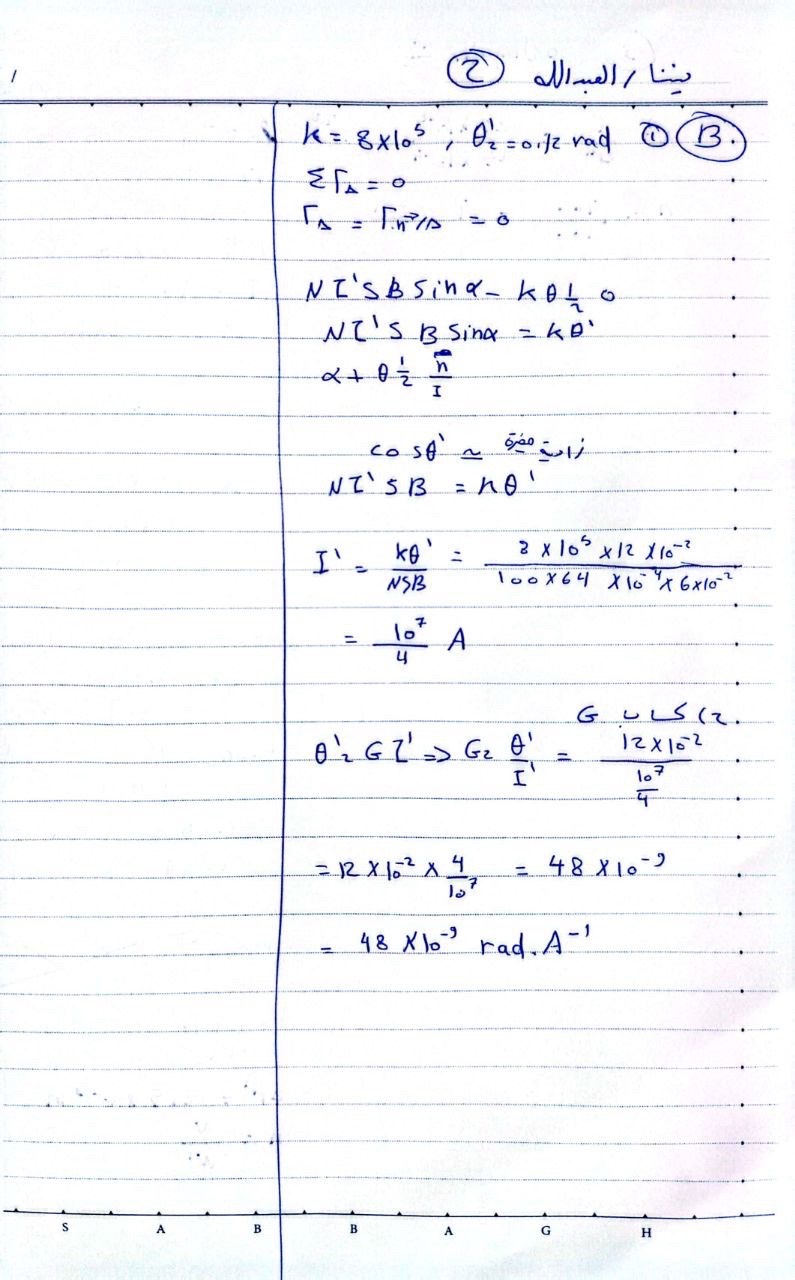 يينا / العبدالله ②
/
B. ① k = 8×10⁵ , θ'₂ = 0,12 rad
ΣΓΔ = 0
ΓΔ = Γη→/Δ = 0
N I' S B Sin α - k θ' = 0
N I' S B Sin α = k θ'
α + θ' = π/2
cos θ' ≃ زاوية صغيرة
N I' S B = k θ'
I' = kθ'/NSB = 8 × 10⁵ × 12 × 10⁻² / 100 × 64 × 10⁻⁴ × 6×10⁻²
= 10⁷/4 A
2) حساب G
θ' = G I' => G = θ'/I' = 12×10⁻² / 10⁷/4
= 12 × 10⁻² × 4/10⁷ = 48 × 10⁻⁹
= 48 × 10⁻⁹ rad. A⁻¹
S A B B A G H